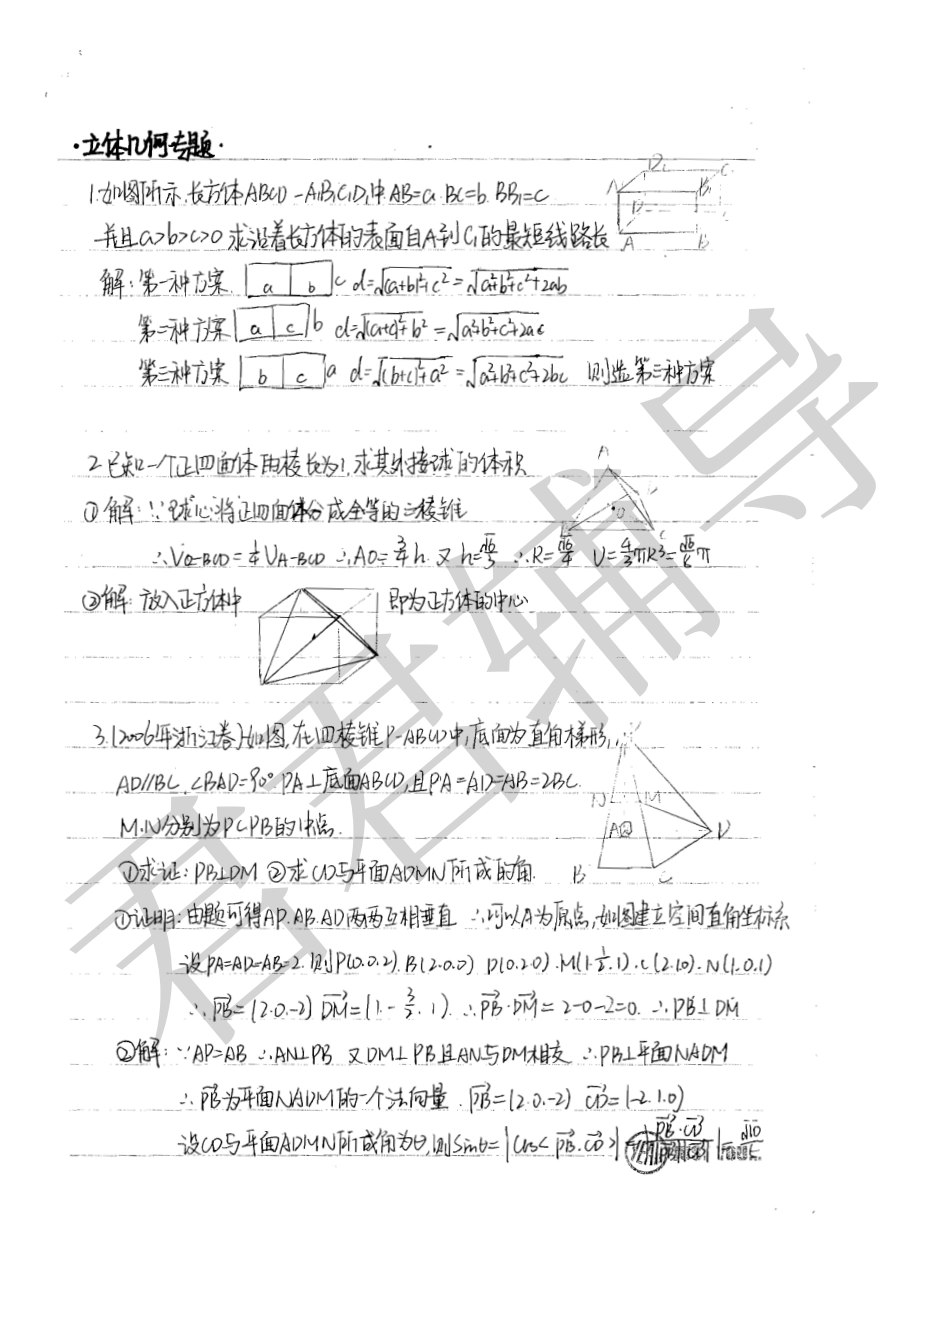 ·立体几何专题·
1.如图所示,长方体ABCD-A₁B₁C₁D₁中.AB=a.BC=b.BB₁=c
并且a>b>c>0 求沿着长方体的表面自A到C₁的最短线路长
A₁ D₁ C₁ B₁ D C A B
解:第一种方案 a b c d=√(a+b)²+c² = √a²+b²+c²+2ab
第二种方案 a c b d=√(a+c)²+b² = √a²+b²+c²+2ac
第三种方案 b c a d=√(b+c)²+a² = √a²+b²+c²+2bc 则选第三种方案
2.已知一个正四面体的棱长为1,求其外接球的体积
A O C
①解:∵球心将正四面体分成全等的三棱锥
∴V_{O-BCD}=1/4 V_{A-BCD} ∴AO=3/4 h 又h=√6/3 ∴R=√6/4 V=4/3πR³=√6/8 π
②解:放入正方体中 即为正方体的中心
3.(2006年浙江卷)如图,在四棱锥P-ABCD中,底面为直角梯形,
AD//BC.∠BAD=90° PA⊥底面ABCD,且PA=AD=AB=2BC.
M.N分别为PC.PB的中点.
N M A D B C
①求证:PB⊥DM ②求CD与平面ADMN所成的角.
①证明:由题可得AP.AB.AD两两互相垂直 ∴可以A为原点,如图建立空间直角坐标系
设PA=AD=AB=2.则P(0.0.2).B(2.0.0) D(0.2.0).M(1.1/2.1).C(2.1.0).N(1.0.1)
∴PB=(2.0.-2) DM=(1.-3/2.1). ∴PB·DM=2-0-2=0. ∴PB⊥DM
②解:∵AP=AB ∴AN⊥PB 又DM⊥PB且AN与DM相交 ∴PB⊥平面NADM
∴PB为平面NADM的一个法向量.PB=(2.0.-2) CD=(-2.1.0)
设CD与平面ADMN所成角为θ,则sinθ=|cos<PB.CD>| PB·CD √10
君君辅导